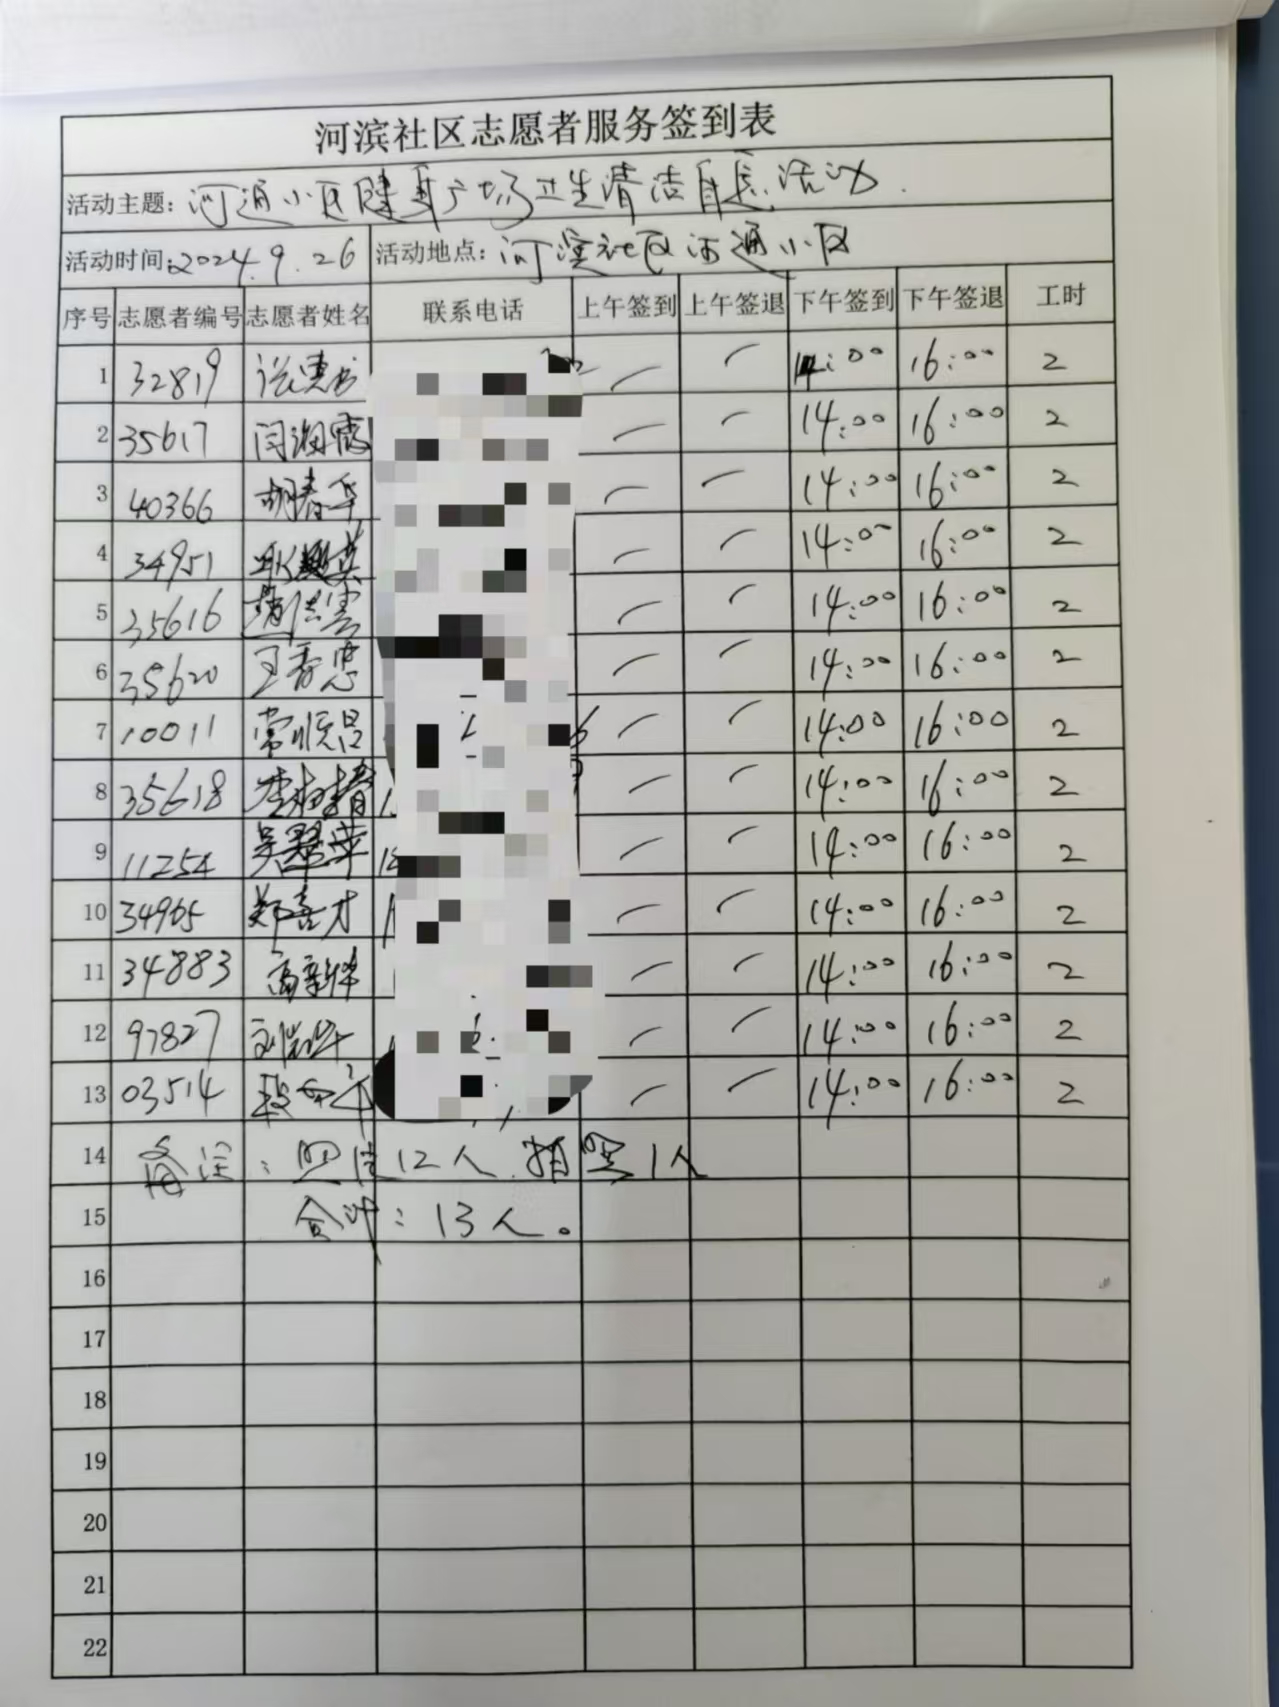 河滨社区志愿者服务签到表
活动主题: 河通小区健身广场卫生清洁自愿活动.
活动时间:2024.9.26 活动地点: 河滨社区河通小区
序号 志愿者编号 志愿者姓名 联系电话 上午签到 上午签退 下午签到 下午签退 工时
1 32819 14:00 16:00 2
2 35617 闫湘霞 14:00 16:00 2
3 40366 胡春华 14:00 16:00 2
4 34951 14:00 16:00 2
5 35616 14:00 16:00 2
6 35620 王香忠 14:00 16:00 2
7 10011 常顺昌 14:00 16:00 2
8 35618 14:00 16:00 2
9 11254 14:00 16:00 2
10 34965 郑喜才 14:00 16:00 2
11 34883 14:00 16:00 2
12 97827 14:00 16:00 2
13 03514 14:00 16:00 2
14 备注: 12人 1人
15 合计: 13人。
16
17
18
19
20
21
22